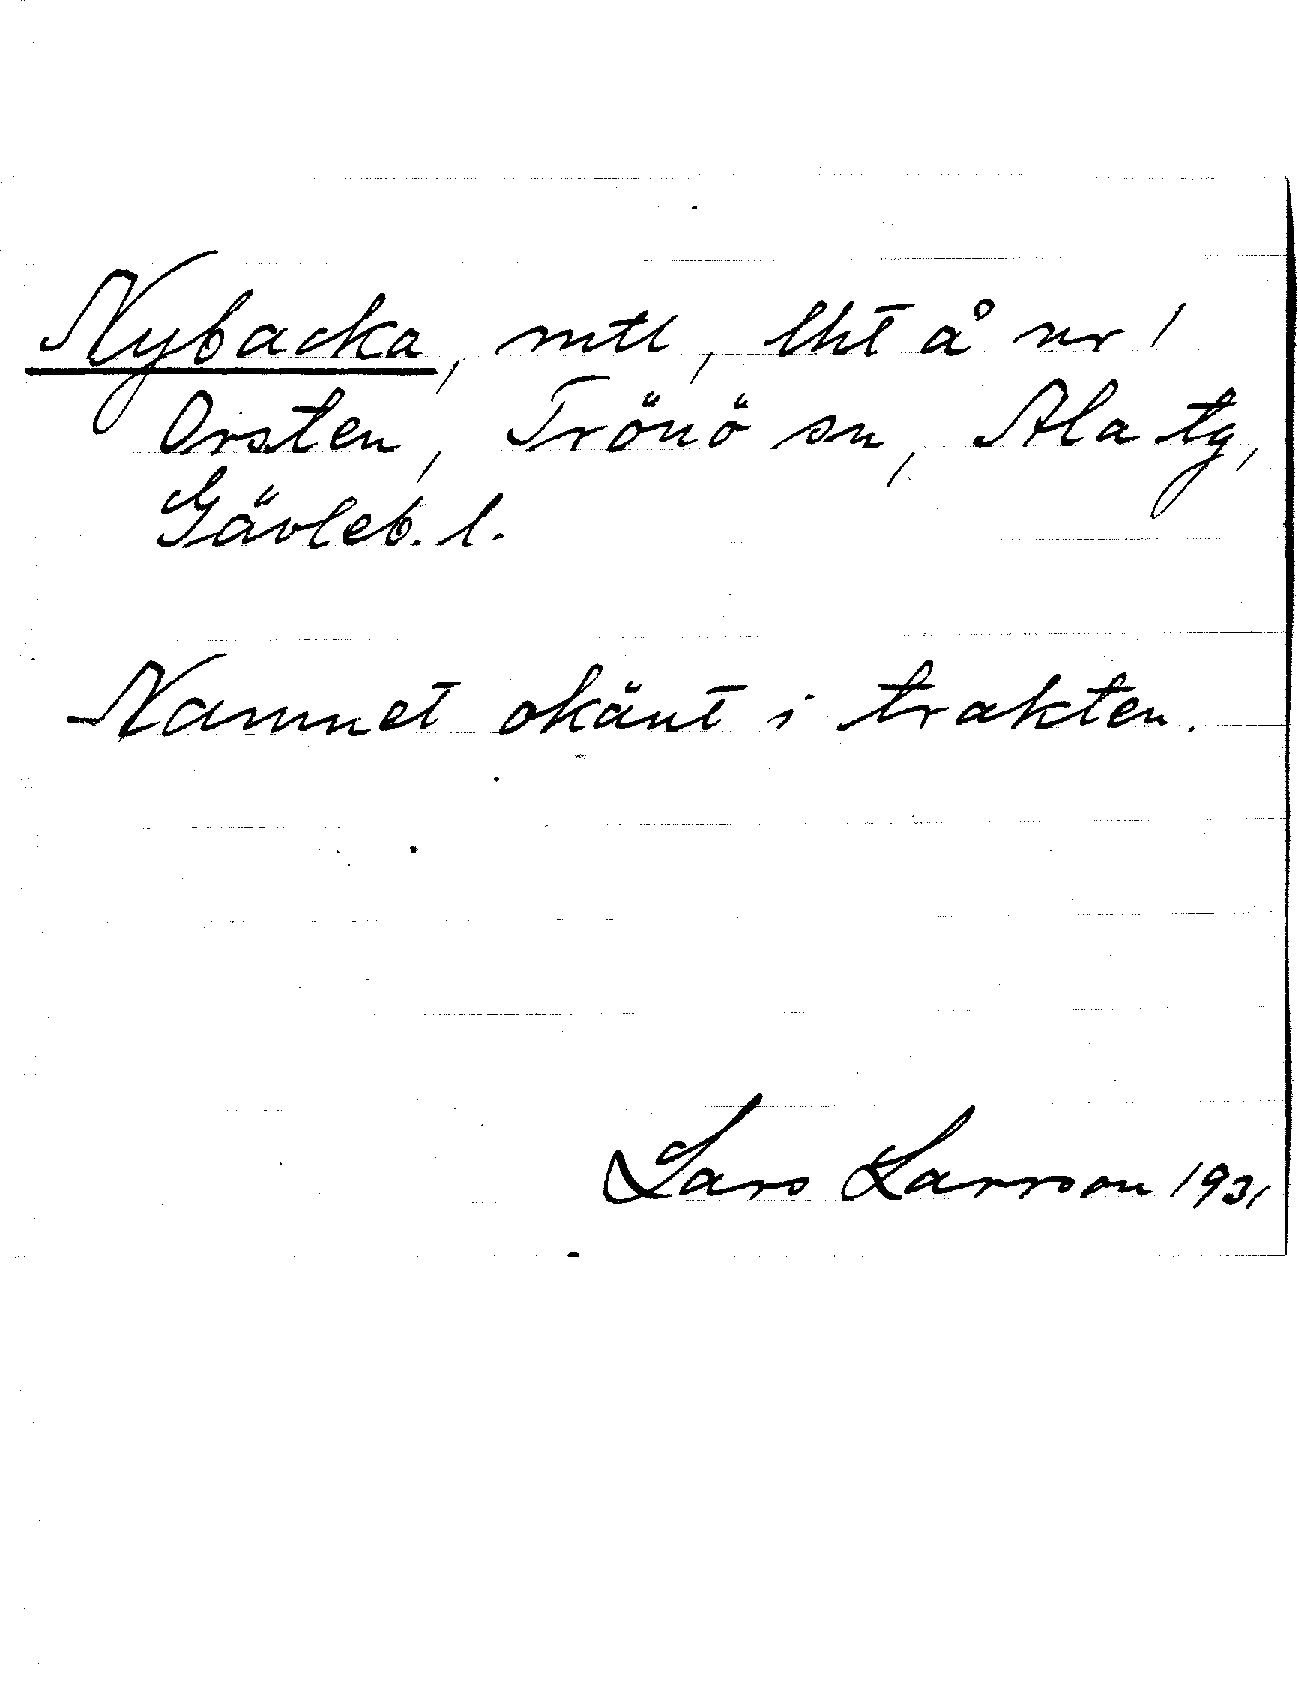 Nybacka, mtl, lht å nr 1
Orsten, Trönö sn, Ala tg,
Gävleb. l.
Namnet okänt i trakten.
Lars Larsson 1931